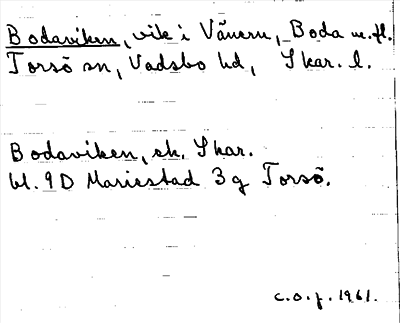 Bodaviken, vik i Vänern, Boda m.fl.
Torsö sn, Vadsbo hd, Skar. l.
Bodaviken, ek. Skar.
bl. 9D Mariestad 3g Torsö.
c.o.f. 1961.